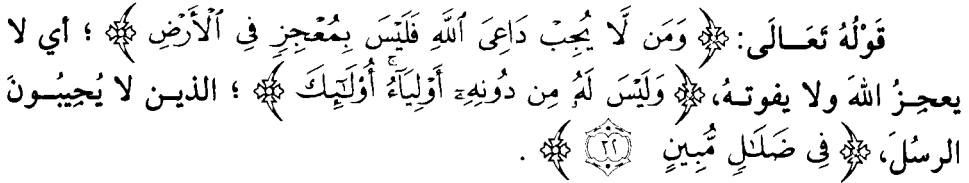 قَوْلُهُ تَعَـــالَى: ﴿ وَمَن لَّا يُجِبْ دَاعِىَ ٱللَّهِ فَلَيْسَ بِمُعْجِزٍ فِى ٱلْأَرْضِ ﴾ ؛ أي لا
يعجـزُ اللهَ ولا يفوتـهُ، ﴿ وَلَيْسَ لَهُۥ مِن دُونِهِۦٓ أَوْلِيَآءُ ۚ أُو۟لَٰٓئِكَ ﴾ ؛ الذيـن لا يُجِيبُـونَ
الرسُلَ، ﴿ فِى ضَلَٰلٍ مُّبِينٍ ٣٢ ﴾ .